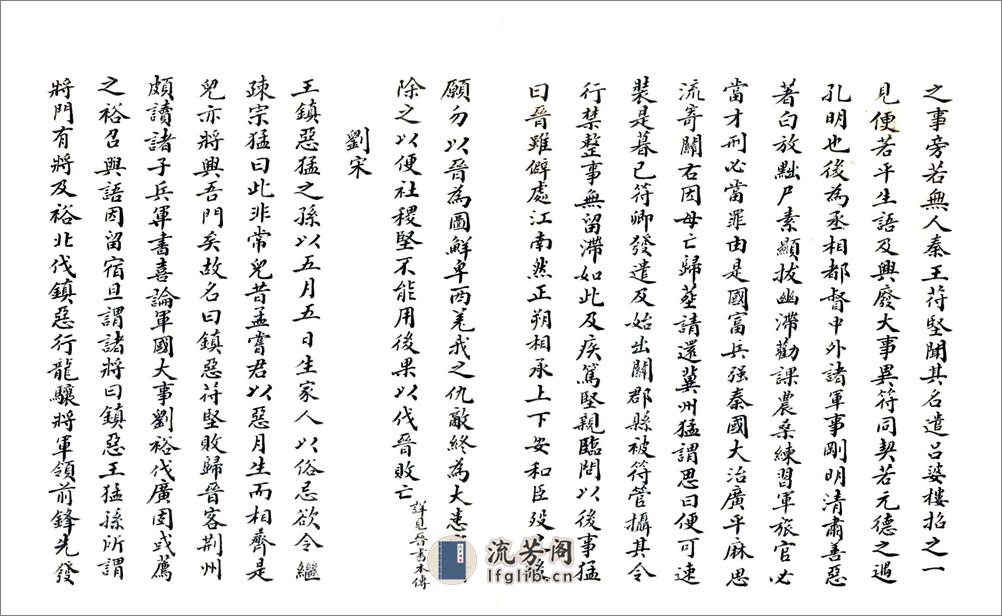 之事旁若無人秦王苻堅聞其名遣呂婆樓招之一
見便若平生語及興廢大事異符同契若元德之遇
孔明也後為丞相都督中外諸軍事剛明清肅善惡
著白放黜尸素顯拔幽滯勸課農桑練習軍旅官必
當才刑必當罪由是國富兵强秦國大治廣平麻思
流寄關右因母亡歸塟請還冀州猛謂思曰便可速
裝是暮已符卿發遣及始出關郡縣被符管攝其令
行禁整事無留滯如此及疾篤堅親臨問以後事猛
曰晉雖僻處江南然正朔相承上下安和臣殁
願勿以晉為圖鮮卑西羌我之仇敵終為大患
除之以便社稷堅不能用後果以伐晉敗亡詳見晉書本傳
劉宋
王鎮惡猛之孫以五月五日生家人以俗忌欲令繼
疎宗猛曰此非常兒昔孟嘗君以惡月生而相齊是
兒亦將興吾門矣故名曰鎮惡苻堅敗歸晉客荆州
頗讀諸子兵軍書喜論軍國大事劉裕伐廣固或薦
之裕召與語因留宿旦謂諸將曰鎮惡王猛孫所謂
將門有將及裕北伐鎮惡行龍驤將軍領前鋒先發
流芳阁
lfglib.cn